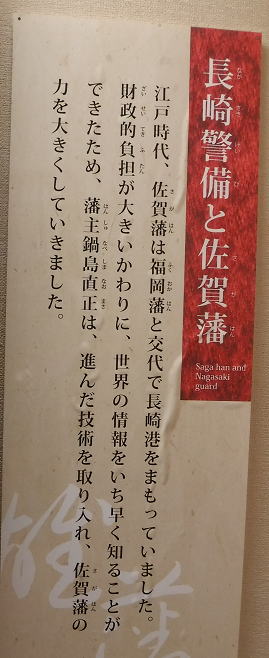 長崎警備と佐賀藩
Saga han and
Nagasaki
guard
江戸時代、佐賀藩は福岡藩と交代で長崎港をまもっていました。
財政的負担が大きいかわりに、世界の情報をいち早く知ることが
できたため、藩主鍋島直正は、進んだ技術を取り入れ、佐賀藩の
力を大きくしていきました。